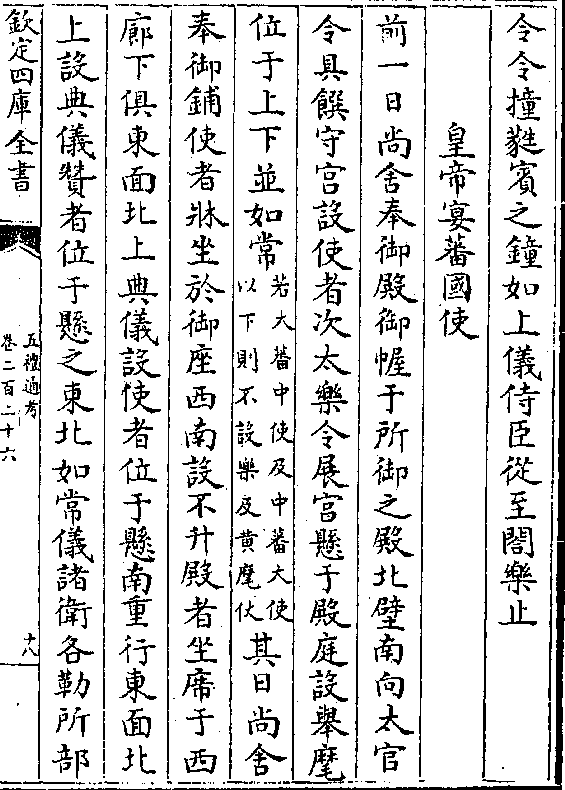 令令撞蕤賓之鐘如上儀侍臣從至閤樂止
皇帝宴蕃國使
前一日尚舍奉御殿御幄于所御之殿北壁南向太官
令具饌守宫設使者次太樂令展宫懸于殿庭設舉麾
位于上下並如常若大蕃中使及中蕃大使以下則不設樂及黄麾仗其日尚舍
奉御鋪使者牀坐於御座西南設不升殿者坐席于西
廊下俱東面北上典儀設使者位于懸南重行東面北
上設典儀贊者位于懸之東北如常儀諸衛各勒所部
欽定四庫全書
五禮通考
卷二百二十六
十八